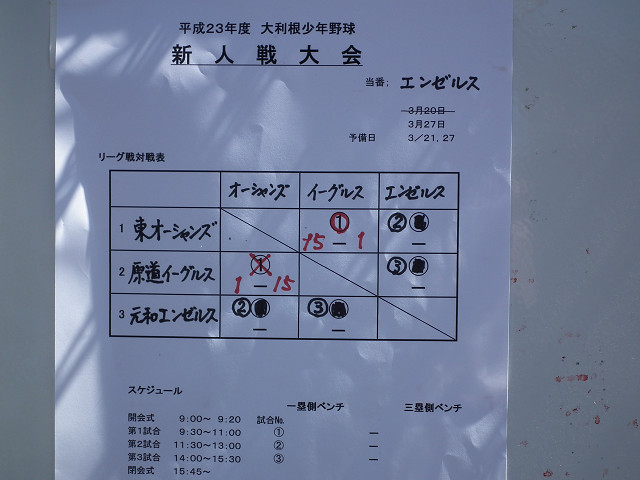 平成23年度 大利根少年野球
新人戦大会
当番; エンゼルス
3月20日
3月27日
予備日 3/21, 27
リーグ戦対戦表
オーシャンズ イーグルス エンゼルス
1 東オーシャンズ ① 15 ー 1 ② ー
2 原道イーグルス ① 1 ー 15 ③ ー
3 元和エンゼルス ② ー ③ ー
スケジュール
一塁側ベンチ 三塁側ベンチ
開会式 9:00~ 9:20 試合No.
第1試合 9:30~11:00 ① ー
第2試合 11:30~13:00 ② ー
第3試合 14:00~15:30 ③ ー
閉会式 15:45~